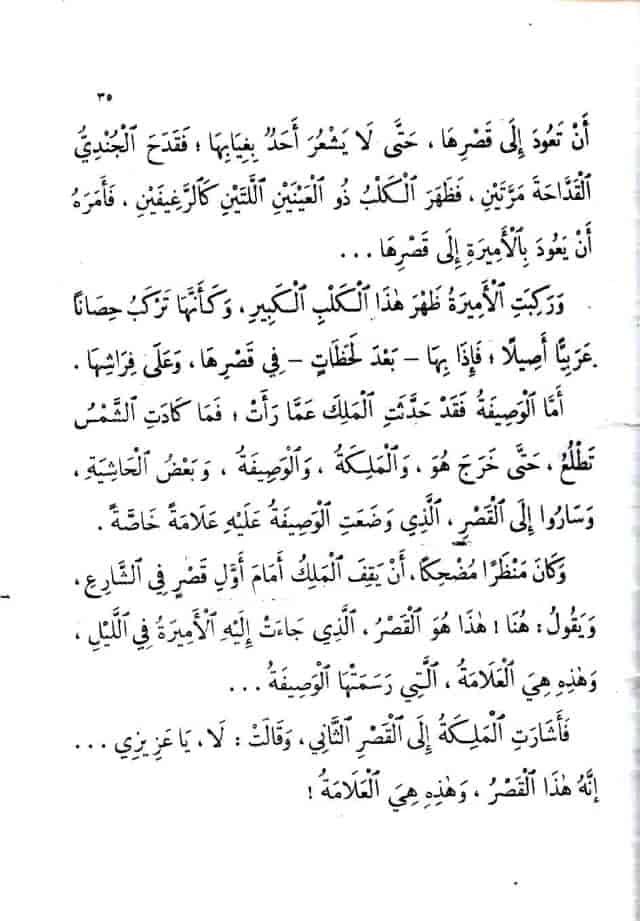 ٣٥
أَنْ تَعُودَ إِلَى قَصْرِهَا ، حَتَّى لَا يَشْعُرَ أَحَدٌ بِغِيَابِهَا ؛ فَقَدَحَ ٱلْجُنْدِيُّ
ٱلْقَدَّاحَةَ مَرَّتَيْنِ ، فَظَهَرَ ٱلْكَلْبُ ذُو ٱلْعَيْنَيْنِ ٱللَّتَيْنِ كَٱلرَّغِيفَيْنِ ، فَأَمَرَهُ
أَنْ يَعُودَ بِٱلْأَمِيرَةِ إِلَى قَصْرِهَا ...
وَرَكِبَتِ ٱلْأَمِيرَةُ ظَهْرَ هٰذَا ٱلْكَلْبِ ٱلْكَبِيرِ ، وَكَأَنَّهَا تَرْكَبُ حِصَانًا
عَرَبِيًّا أَصِيلًا ؛ فَإِذَا بِهَا – بَعْدَ لَحَظَاتٍ – فِي قَصْرِهَا ، وَعَلَى فِرَاشِهَا .
أَمَّا ٱلْوَصِيفَةُ فَقَدْ حَدَّثَتِ ٱلْمَلِكَ عَمَّا رَأَتْ ؛ فَمَا كَادَتِ ٱلشَّمْسُ
تَطْلُعُ ، حَتَّى خَرَجَ هُوَ ، وَٱلْمَلِكَةُ ، وَٱلْوَصِيفَةُ ، وَبَعْضُ ٱلْحَاشِيَةِ ،
وَسَارُوا إِلَى ٱلْقَصْرِ ، ٱلَّذِي وَضَعَتِ ٱلْوَصِيفَةُ عَلَيْهِ عَلَامَةً خَاصَّةً .
وَكَانَ مَنْظَرًا مُضْحِكًا ، أَنْ يَقِفَ ٱلْمَلِكُ أَمَامَ أَوَّلِ قَصْرٍ فِي ٱلشَّارِعِ ،
وَيَقُولُ : هُنَا ! هٰذَا هُوَ ٱلْقَصْرُ ، ٱلَّذِي جَاءَتْ إِلَيْهِ ٱلْأَمِيرَةُ فِي ٱللَّيْلِ ،
وَهٰذِهِ هِيَ ٱلْعَلَامَةُ ، ٱلَّتِي رَسَمَتْهَا ٱلْوَصِيفَةُ ...
فَأَشَارَتِ ٱلْمَلِكَةُ إِلَى ٱلْقَصْرِ ٱلثَّانِي ، وَقَالَتْ : لَا ، يَا عَزِيزِي ...
إِنَّهُ هٰذَا ٱلْقَصْرُ ، وَهٰذِهِ هِيَ ٱلْعَلَامَةُ !